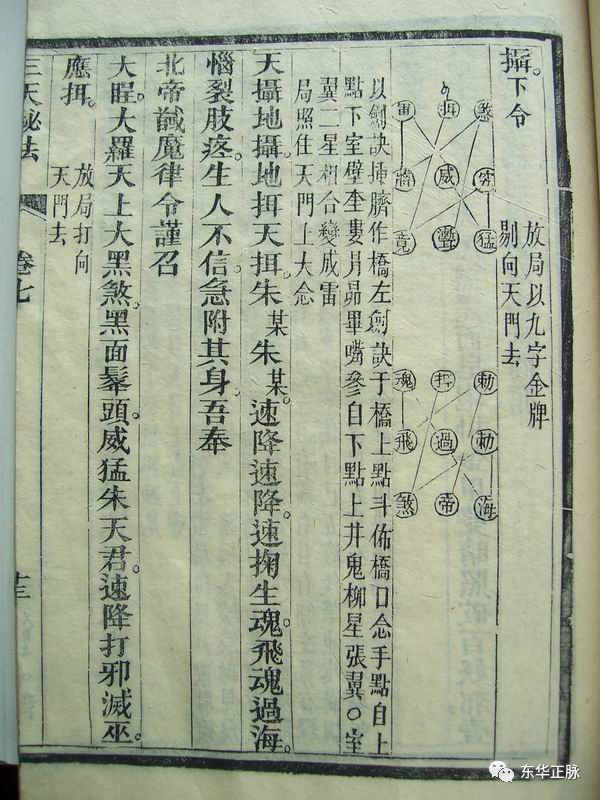 攝。下令
放局以九字金牌
剔向天門去
雷 挕 煞
威
竟 猛
魂 勅
飛 過 勅
煞 帝 海
以劍訣揷臍作橋左劍訣于橋上點斗佈橋口念手點自上
點下室壁奎婁胃昴畢嘴參自下點上井鬼柳星張翼〇室
翼二星相合變成雷
局照住天門上大念
天攝地攝地挕天挕朱某朱某。速降速降。速掬生魂。飛魂過海。
惱裂肢疼。生人不信。急附其身。吾奉
北帝馘魔律令謹召
大。大羅天上大黑煞。黑面髼頭。威猛朱天君。速降打邪滅巫。
應挕。
放局打向
天門去
三天秘法
卷七
十三
东华正脉